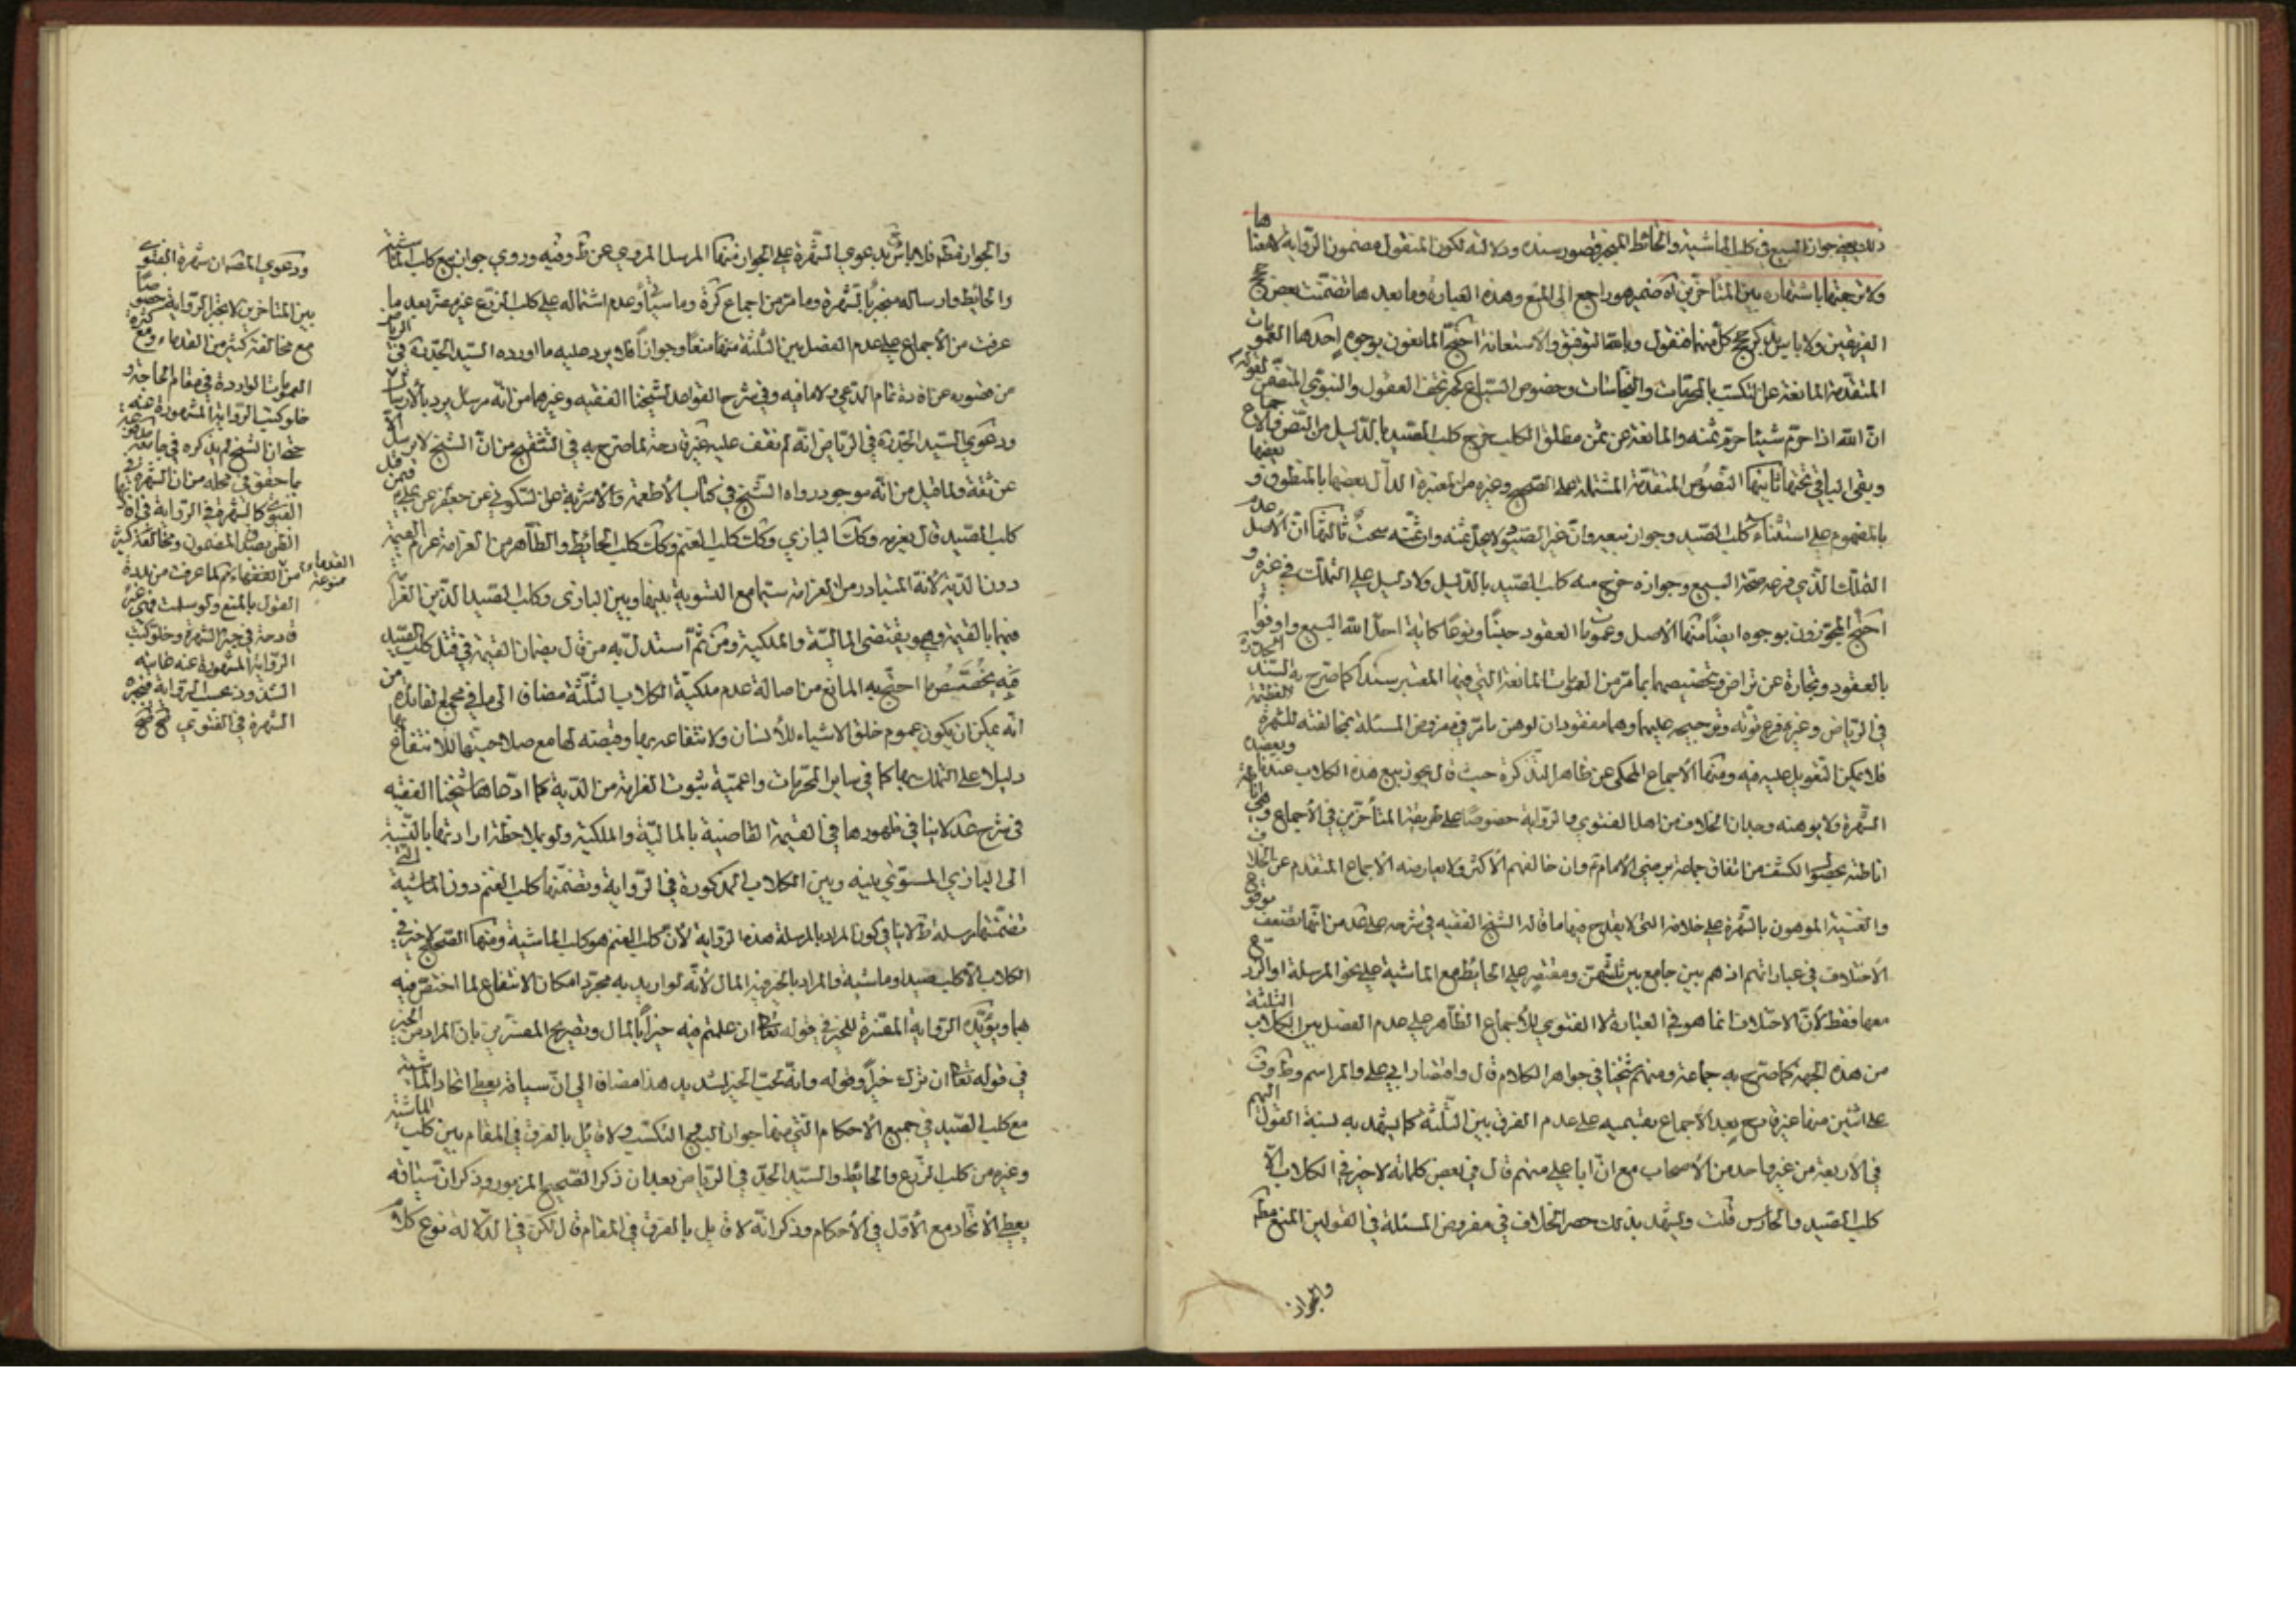 ذلك يعنى جواز البيع فى كلب الماشية والحائط المنجبر قصور سنده ودلالته لكون المنقول مضمون الرواية لا معناها
ولا ترجمتها باشتهاره بين المتأخرين اه ضميره راجع الى المنع وهذه العبارة وما بعدها تضمنت بعض حجج
الفريقين ولا باس بذكر حجج كل منهما فنقول وبالله التوفيق والاستعانة احتج المانعون بوجوه احدها العمومات
المتقدمة المانعة عن التكسب بالمحرمات والنجاسات وخصوص السباع كخبر تحف العقول والنبوى المتضمن لقوله
ان الله اذا حرم شيئا حرم ثمنه والمانعة عن ثمن مطلق الكلب خرج كلب الصيد بالدليل من النص والاجماع
وبقى الباقى تحتها ثانيها النصوص المتقدمة المشتملة على الصحيح وغيره من المعتبرة الدال بعضها بالمنطوق وبعضها
بالمفهوم على استثناء كلب الصيد وجواز بيعه وان غير الصيود لا يحل ثمنه وان ثمنه سحت ثالثها ان الاصل عدم
التملك الذي فرعه صحة البيع وجوازه خرج منه كلب الصيد بالدليل ولا دليل على التملك فى غيره و
احتج المجوزون بوجوه ايضا منها الاصل وعمومات العقود جنسا ونوعا كاية احل الله البيع واوفوا
بالعقود وتجارة عن تراض وتخصيصهما بما مر من العمومات المانعة التي فيها المعتبر سندا كما صرح به السيد الجد ره
فى الرياض وغيره فرع قوته وترجيحه عليهما وهما مفقودان لوهن ما مر فى مفروض المسئلة بمخالفته للشهرة العظيمة
فلا يمكن التعويل عليه فيه ومنها الاجماع المحكى عن ظاهر التذكرة حيث قال يجوز بيع هذه الكلاب عندنا ويعضده
الشهرة ولا يوهنه وجدان الخلاف من اهل الفتوى والرواية خصوصا على طريقة المتأخرين فى الاجماع وهى اناطة
اناطته بحصول الكشف من اتفاق جماعة برضى الامام ع وان خالفهم الاكثر ولا يعارضه الاجماع المتقدم عن الخلاف
والغنية الموهون بالشهرة على خلافه التى لا يقدح فيها ما قاله الشيخ الفقيه فى شرحه على عد من انها تضعف بوقوع
الاختلاف فى عباراتهم اذ هم بين جامع بين ثلثتهن ومقتصر على الحائط مع الماشية على نحو المرسلة او الزرع
معها فقط لان الاختلاف انما هو فى العبارة لا الفتوى للاجماع الظاهر على عدم الفصل بين الكلاب الثلثة
من هذه الجهة كما صرح به جماعة ومنهم شيخنا فى جواهر الكلام قال واقتصار ابي على والمراسم وط وف
على اثنين منها غير قادح بعد الاجماع بقسميه على عدم الفرق بين الثلثة كما يشهد به نسبة القول اليهم
فى الاربعة من غير واحد من الاصحاب مع ان ابا على منهم قال فى بعض كلماته لا خير فى الكلاب الا
كلب الصيد والحارس قلت ويشهد بذلك حصر الخلاف فى مفروض المسئلة فى القولين المنع مطلقا
والجواز
والجواز مطلقا فلا باس بدعوى الشهرة على الجواز فمنها المرسل المروي عن ط وفيه وروي جواز بيع كلب الماشية
والحائط وارساله منجبر بالشهرة وما مر من اجماع كرة وما سيأتي وعدم اشتماله على كلب الزرع غير مضر بعد ما
عرفت من الاجماع على عدم الفصل بين الثلثة منها منعا وجوازا فلا يرد عليه ما اورده السيد الجد ره فى الرياض
من قصوره عن افادة تمام المدعى ولا ما فيه وفى شرح القواعد لشيخنا الفقيه وغيرهما من انه مرسل يرد بالارسال
ودعوى السيد الجد ره فى الرياض انه لم نقف عليه غير قادحة لما صرح به فى التنقيح من ان الشيخ لا يرسل الا
عن ثقة ولما قيل من انه موجود رواه الشيخ فى كتاب الاطعمة والاشربة عن السكونى عن جعفر عن على ع فيمن قتل
كلب الصيد قال يغرمه وكذلك البازي وكذلك كلب الغنم وكذلك كلب الحائط والظاهر من الغرامة غرم القيمة
دون الدية لانه المتبادر من الغرامة سيما مع التسوية بينها وبين البازى وكلب الصيد الذين الغرامة
فيهما بالقيمة وهو يقتضى المالية والملكية ومن ثم استدل به من قال بضمان القيمة فى قتل كلب الصيد
فيه يخصص ما احتج به المانع من اصالة عدم ملكية الكلاب الثلثة مضافا الى ما فى مجمع الفائدة من
انه يمكن ان يكون عموم خلق الاشياء للانسان ولانتفاعه بها وقبضته لها مع صلاحيتها للانتفاع بها
دليلا على التملك بها كما فى ساير المحرمات واعمية ثبوت الغرامة من الدية كما ادعاها شيخنا الفقيه
فى شرح عد لا ينافى ظهورها فى القيمة القاضية بالمالية والملكية ولو بملاحظة ارادتها بالنسبة
الى البازي المستوى بينه وبين الكلاب المذكورة فى الرواية وتضمنها كلب الغنم دون الماشية التى
تضمنتها مرسلة ط لا ينافى كون المراد بالمرسلة هذه الرواية لان كلب الغنم هو كلب الماشية ومنها الصحيح لا خير فى
الكلاب الا كلب صيد او ماشية والمراد بالخير فيه المال لانه لو اريد به مجرد امكان الانتفاع لما اختص فيه
بهما ويؤيده الرواية المفسرة للخير فى قوله تعالى ان علمتم فيه خيرا بالمال وتصريح المفسرين بان المراد من الخير
في قوله تعالى ان ترك خيرا وقوله وانه لحب الخير لشديد هذا مضافا الى ان سياقه يعطى اتحاد الماشية
مع كلب الصيد فى جميع الاحكام التي منها جواز البيع والتكسب ولا قائل بالفرق فى المقام بين كلب الماشية
وغيره من كلب الزرع والحائط والسيد الجد فى الرياض بعد ان ذكر الصحيح المزبور وذكر ان سياقه
يعطى الاتحاد مع الاول فى الاحكام وذكر انه لا قايل بالفرق فى المقام قال لكن فى الدلالة نوع كلام
ودعوى القصران شهرة الفتوى
بين المتأخرين لا تجبر الرواية خصوصا
مع مخالفة كثير من القدماء ومع كثرة
العمومات الواردة فى مقام الحاجة و
خلو كتب الرواية المشهورة عنه
حتى ان الشيخ لم يذكره فى جامعه مدفوعة
بما حقق فى محله من ان الشهرة فى
الفتوى كالشهرة فى الرواية فى افادتها
الظن بصدق المضمون ومخالفة كثير
من الفقهاء القدماء ممنوعة لما عرفت من ندرة
القول بالمنع ولو سلمت فهى غير
قادحة فى جبر الشهرة وخلو كتب
الرواية المشهورة عنه غايته
الشذوذ بحسب الرواية فتجبره
الشهرة فى الفتوى صح صح